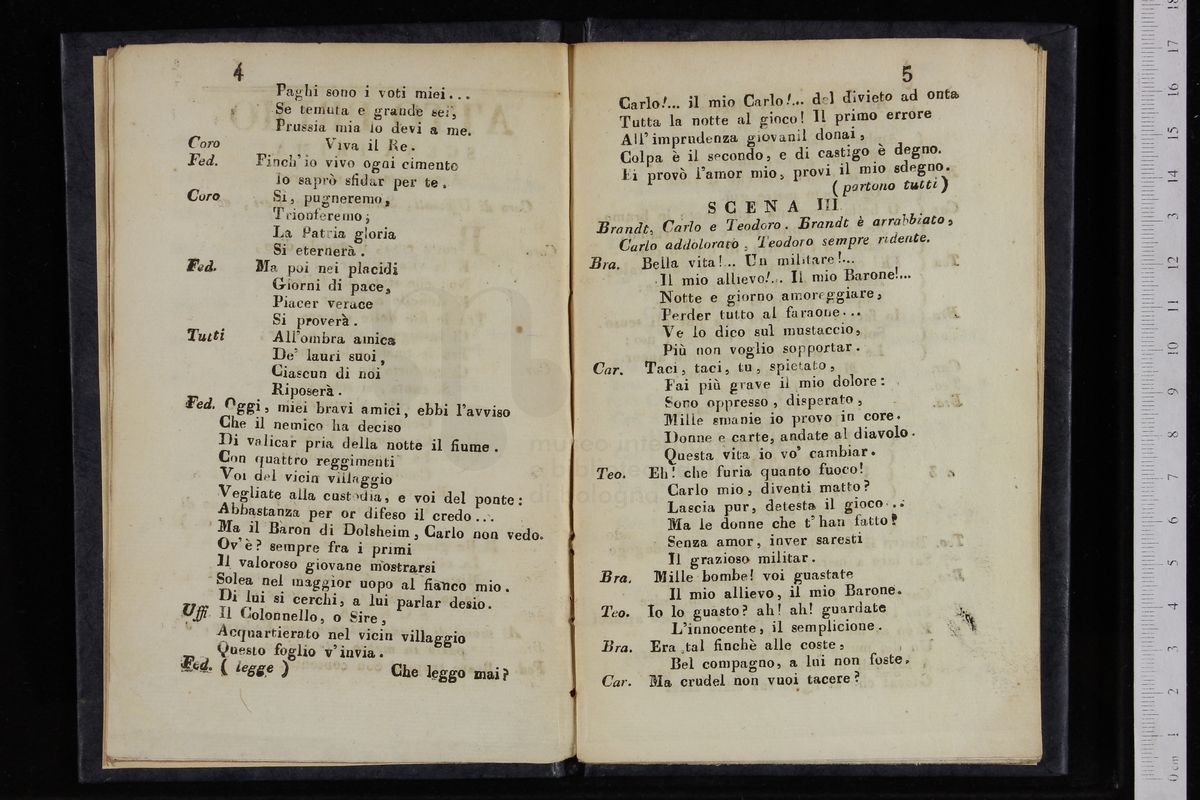 4
Paghi sono i voti miei...
Se temuta e grande sei,
Prussia mia lo devi a me.
Coro Viva il Re.
Fed. Finch' io vivo ogni cimento
Io saprò sfidar per te.
Coro Si, pugneremo,
Trionferemo;
La Patria gloria
Si eternerà.
Fed. Ma poi nei placidi
Giorni di pace,
Piacer verace
Si proverà.
Tutti All'ombra amica
De' lauri suoi,
Ciascun di noi
Riposerà.
Fed. Oggi, miei bravi amici, ebbi l'avviso
Che il nemico ha deciso
Di valicar pria della notte il fiume.
Con quattro reggimenti
Voi del vicin villaggio
Vegliate alla custodia, e voi del ponte:
Abbastanza per or difeso il credo...
Ma il Baron di Dolsheim, Carlo non vedo.
Ov'è? sempre fra i primi
Il valoroso giovane mostrarsi
Solea nel maggior uopo al fianco mio.
Di lui si cerchi, a lui parlar desio.
Uffi Il Colonnello, o Sire,
Acquartierato nel vicin villaggio
Questo foglio v'invia.
Fed. ( legge ) Che leggo mai?
5
Carlo!... il mio Carlo!... del divieto ad onta
Tutta la notte al gioco! Il primo errore
All' imprudenza giovanil donai,
Colpa è il secondo, e di castigo è degno.
Ei provò l'amor mio, provi il mio sdegno.
( partono tutti )
SCENA III
Brandt, Carlo e Teodoro. Brandt è arrabbiato,
Carlo addolorato, Teodoro sempre ridente.
Bra. Bella vita!... Un militare!...
Il mio allievo!... Il mio Barone!...
Notte e giorno amoreggiare,
Perder tutto al faraone...
Ve lo dico sul mustaccio,
Più non voglio sopportar.
Car. Taci, taci, tu, spietato,
Fai più grave il mio dolore:
Sono oppresso, disperato,
Mille smanie io provo in core.
Donne e carte, andate al diavolo.
Questa vita io vo' cambiar.
Teo. Eh! che furia quanto fuoco!
Carlo mio, diventi matto?
Lascia pur, detesta il gioco...
Ma le donne che t' han fatto?
Senza amor, inver saresti
Il grazioso militar.
Bra. Mille bombe! voi guastate
Il mio allievo, il mio Barone.
Teo. Io lo guasto? ah! ah! guardate
L'innocente, il semplicione.
Bra. Era tal finchè alle coste,
Bel compagno, a lui non foste.
Car. Ma crudel non vuoi tacere?